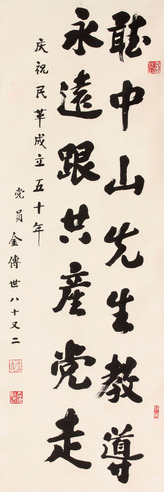 聽中山先生教導
永遠跟共產党走
庆祝民革成立五十年
党员金傳世八十又二